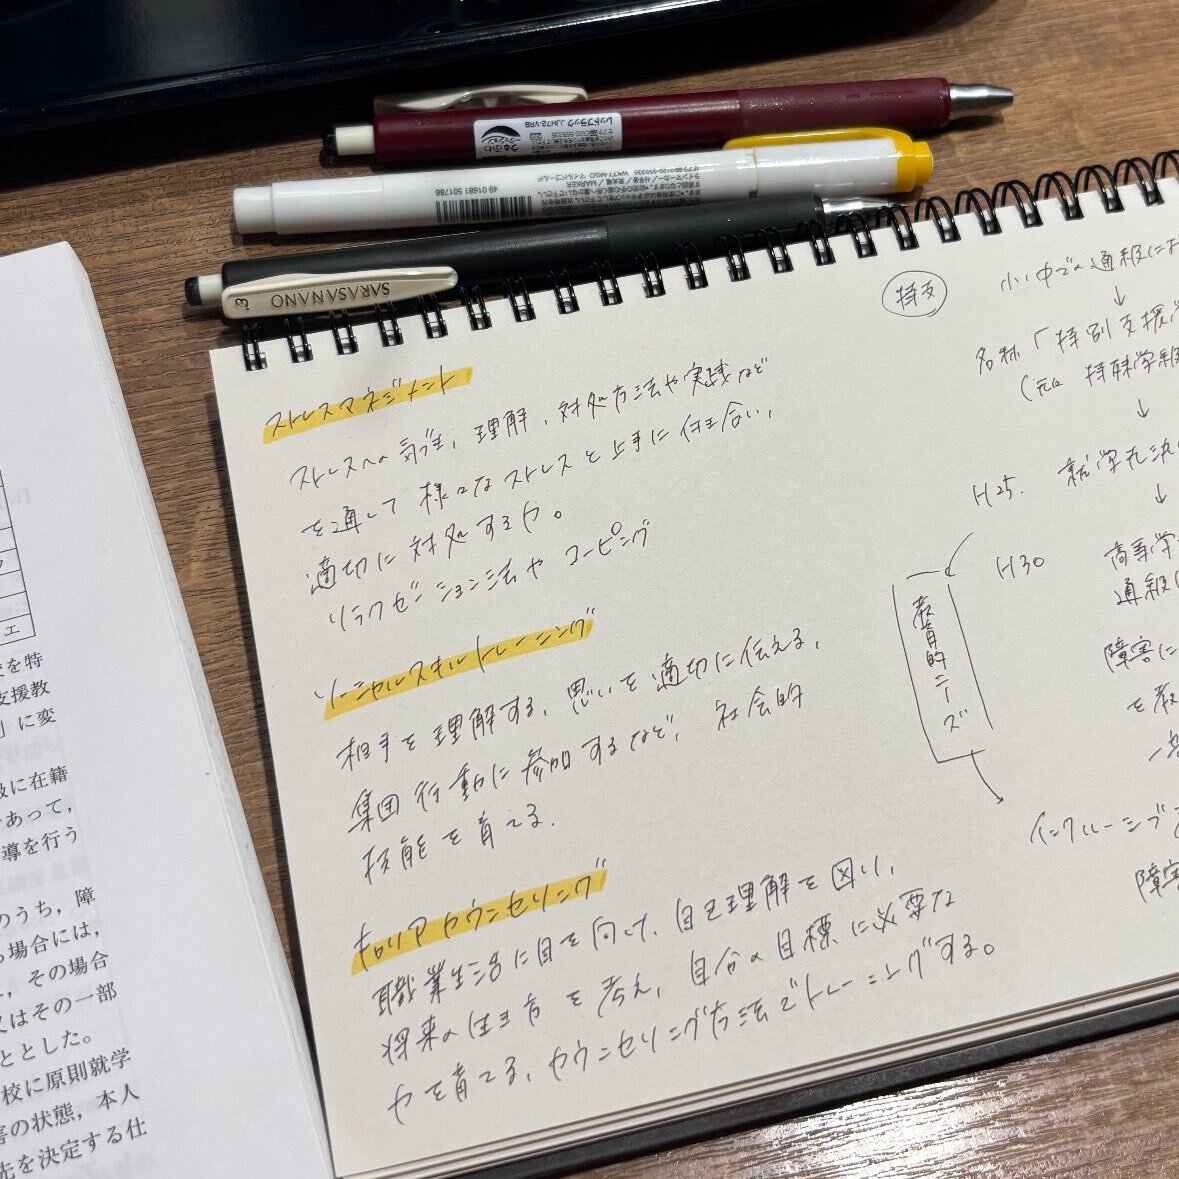 うるふわ
クッション
レッドブラック JJH72-VRB
ゼブラ 0120-555335
ラインマーカー/科学者/蛍光ペン/MARKER
ゼブラ 0120-555335 WKT7-MGO マイルドゴールド
49 01681 501786
SARASA NANO
0.3
ストレスマネジメント
ストレスへの気づき、理解、対処方法や実践など
を通して様々なストレスと上手に付き合い、
適切に対処する力。
リラクゼーション法やコーピング
ソーシャルスキルトレーニング
相手を理解する、思いを適切に伝える、
集団行動に参加するなど、社会的
技能を育てる.
キャリアカウンセリング
職業生活に目を向けて、自己理解を図り、
将来の生き方を考え、自分の目標に必要な
力を育てる、カウンセリング方法でトレーニングする。
特支
小・中での通級にお
↓
名称「特別支援学
(元は 特殊学級
↓
H25. 就学先決
↓
H30 高等学
通級に
教育的ニーズ
障害に
を教
インクルーシブ
障害
エ
を特
支援教
」に変
級に在籍
あって,
導を行う
のうち, 障
る場合には,
, その場合
又はその一部
ととした。
校に原則就学
害の状態, 本人
先を決定する仕